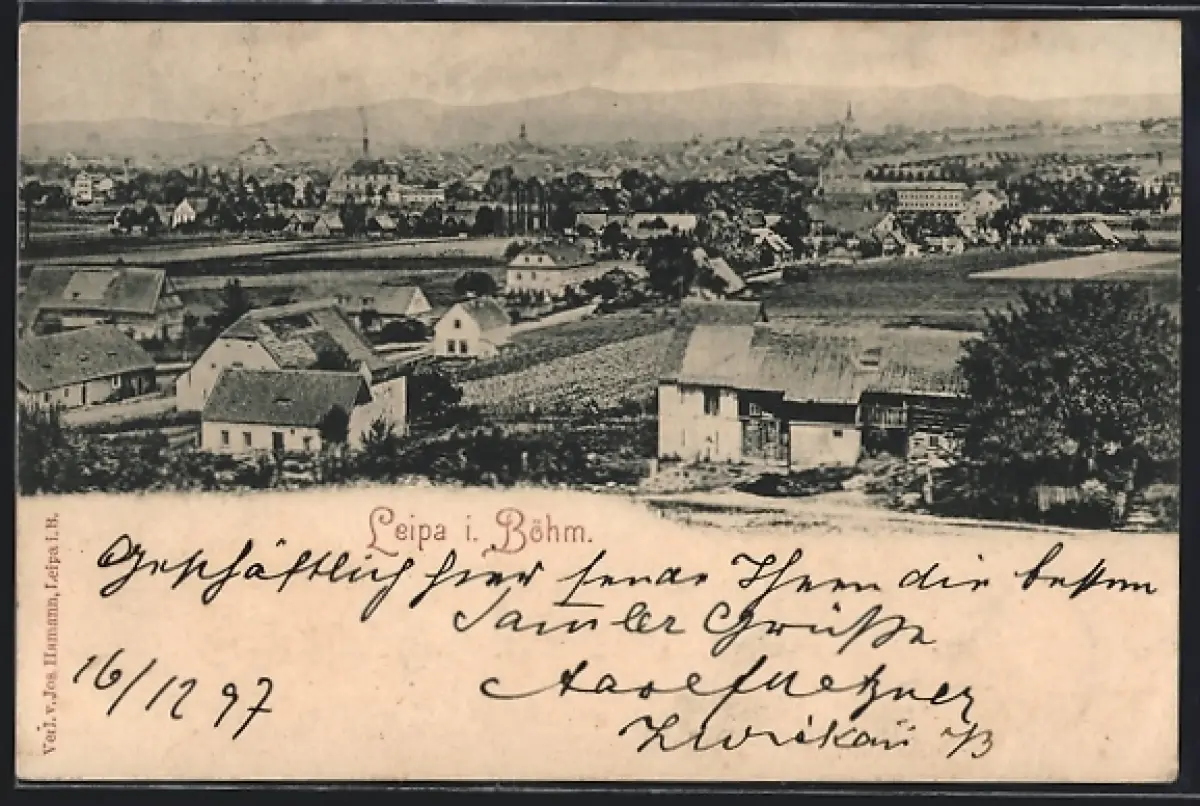 Leipa i. Böhm.
Verl. v. Jos. Hamann, Leipa i. B.
Geschäftlich hier sende Ihnen die besten
Samler Grüße
16/12 97
Metzner
Zwickau i/B